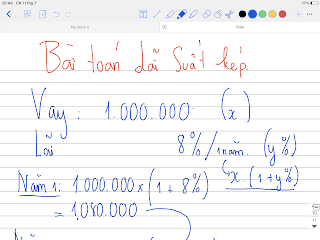 20:49 CN 11 thg 7
17%
Bài toán Lãi Suất kép.
Vay: 1.000.000 (x)
Lãi 8%/1năm. (y%)
Năm 1: 1.000.000 x (1 + 8%) x.(1+y%)
= 1.080.000